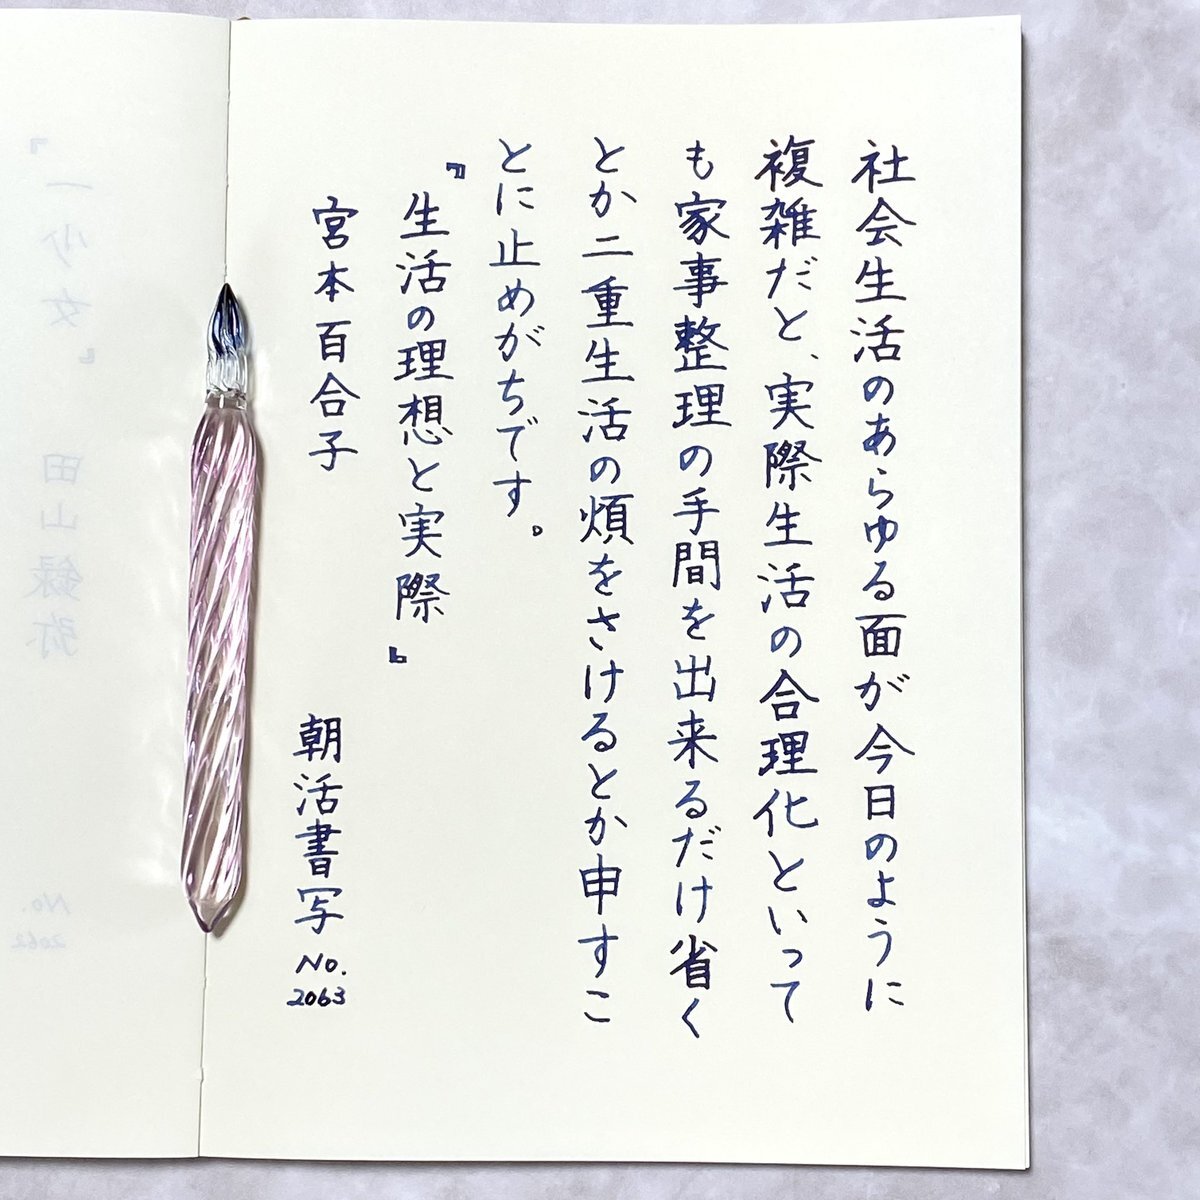 社会生活のあらゆる面が今日のように
複雑だと、実際生活の合理化といって
も家事整理の手間を出来るだけ省く
とか二重生活の煩をさけるとか申すこ
とに止めがちです。
『生活の理想と実際』
宮本百合子
朝活書写
No.
2063
『一少女』 田山録弥
No.
2062